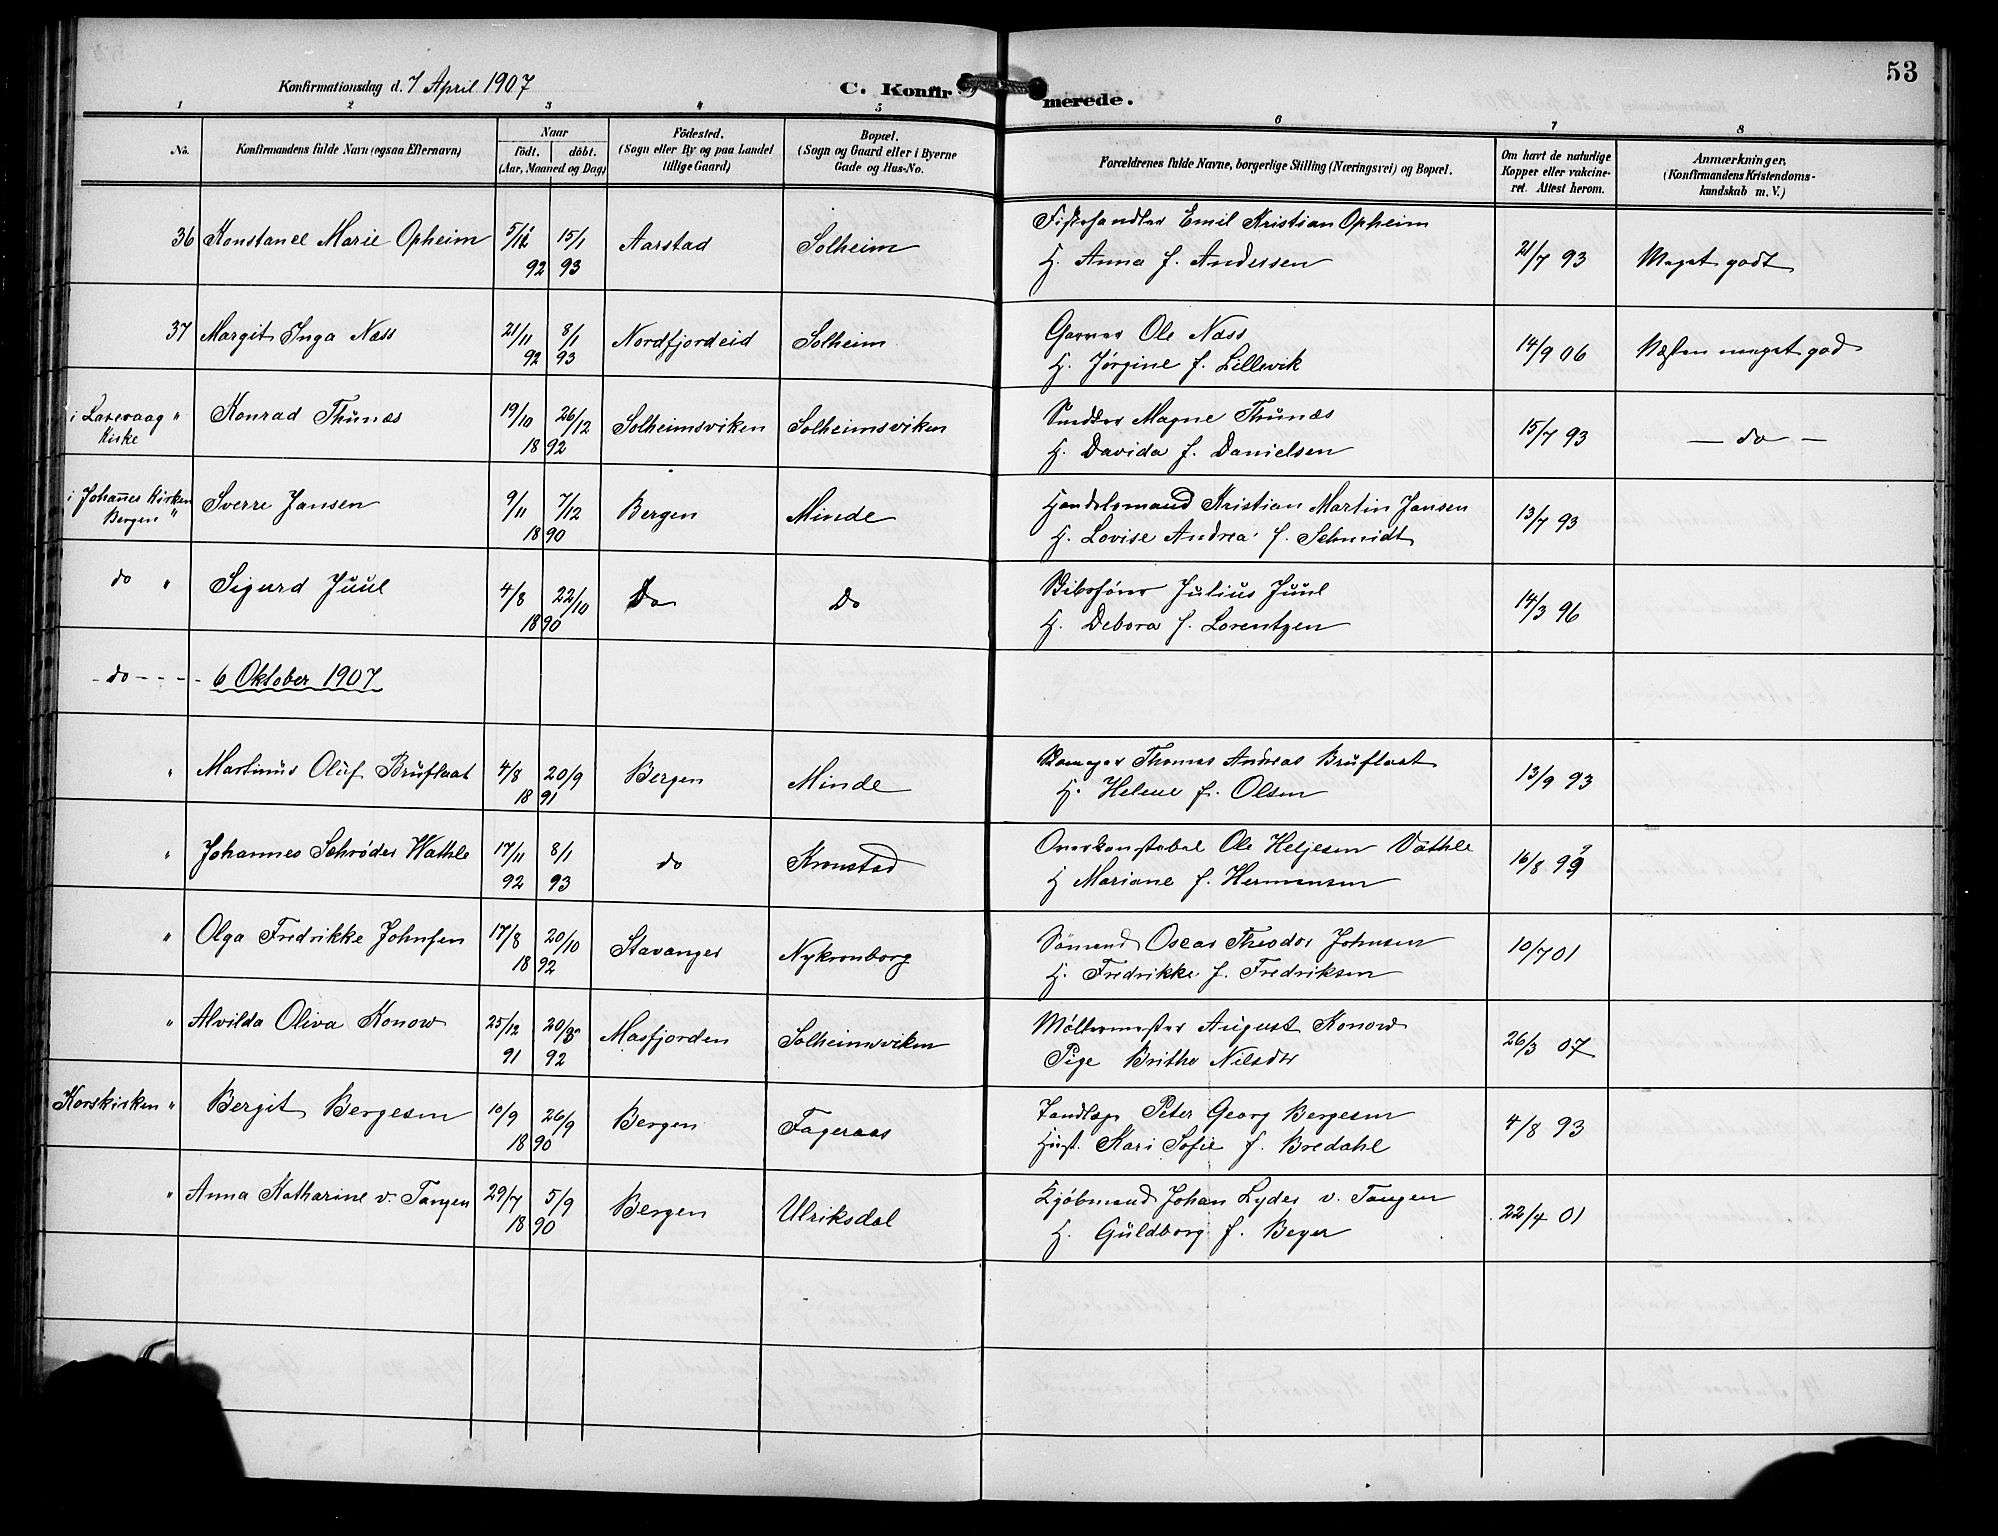 53
Konfirmationsdag d. 7 April 1907
C. Konfir merede.
1 2 3 4 5 6 7 8
No. Konfirmandens fulde Navn (ogsaa Efternavn) Naar födt. döbt. (Aar, Maaned og Dag) Födested. (Sogn eller By og paa Landet tillige Gaard) Bopæl. (Sogn og Gaard eller i Byerne Gade og Hus-No. Forældrenes fulde Navne, borgerlige Stilling (Næringsvei) og Bopæl. Om havt de naturlige Kopper eller vakcineret. Attest herom. Anmærkninger. (Konfirmandens Kristendomskundskab m. V.)
36 Konstance Marie Opheim 5/12 92 15/1 93 Aarstad Solheim Fiskehandler Emil Kristian Opheim
H. Anna f. Andersen 21/7 93 Meget godt
37 Margit Inga Næss 21/11 92 8/1 93 Nordfjordeid Solheim Garver Ole Næss
H. Jørgine f. Lillevik 14/9 06 Næsten meget god
i Laxevaag Kirke " Konrad Thunæs 19/10 26/12 1892 Solheimsviken Solheimsviken Smed Magne Thunæs
H. Davida f. Danielsen 15/7 93 — do —
i Johannes Kirken Bergen " Sverre Jansen 9/11 7/12 1890 Bergen Minde Handelsmand Kristian Martin Jansen
H. Lovise Andrea f. Schmidt 13/7 93
do " Sigurd Juul 4/8 22/10 1890 Do Do Julius Juul
H. Debora f. Lorentzen 14/3 96
- do - - - - 6 Oktober 1907
" Martinus Oluf Bruflaat 4/8 20/9 1891 Bergen Minde Thomas Andreas Bruflaat
H. Helene f. Olsen 13/9 93
" Johannes Schrøder Wathle 17/11 92 8/1 93 do Kronstad Overkonstabel Ole Heljesen Vathle
H Mariane f. Hermansen 16/8 99
" Olga Fredrikke Johnsen 17/8 20/10 1892 Stavanger Nykronborg Sömand Oscar Theodor Johnsen
H. Fredrikke f. Fredriksen 10/7 01
" Alvilda Oliva Konow 25/12 91 20/3 92 Masfjorden Solheimsviken Møllermester August Konow
Pige Britha Nilsdtr 26/3 07
Korskirken " Bergit Bergesen 10/9 26/9 1890 Bergen Fageraas Tandlæge Peter Georg Bergesen
Hust. Kari Sofie f. Bredahl 4/8 93
" Anna Katharine v. Tangen 29/7 5/9 1890 Bergen Ulriksdal Kjøbmand Johan Lyder v. Tangen
H. Guldborg f. Beyer 22/4 01